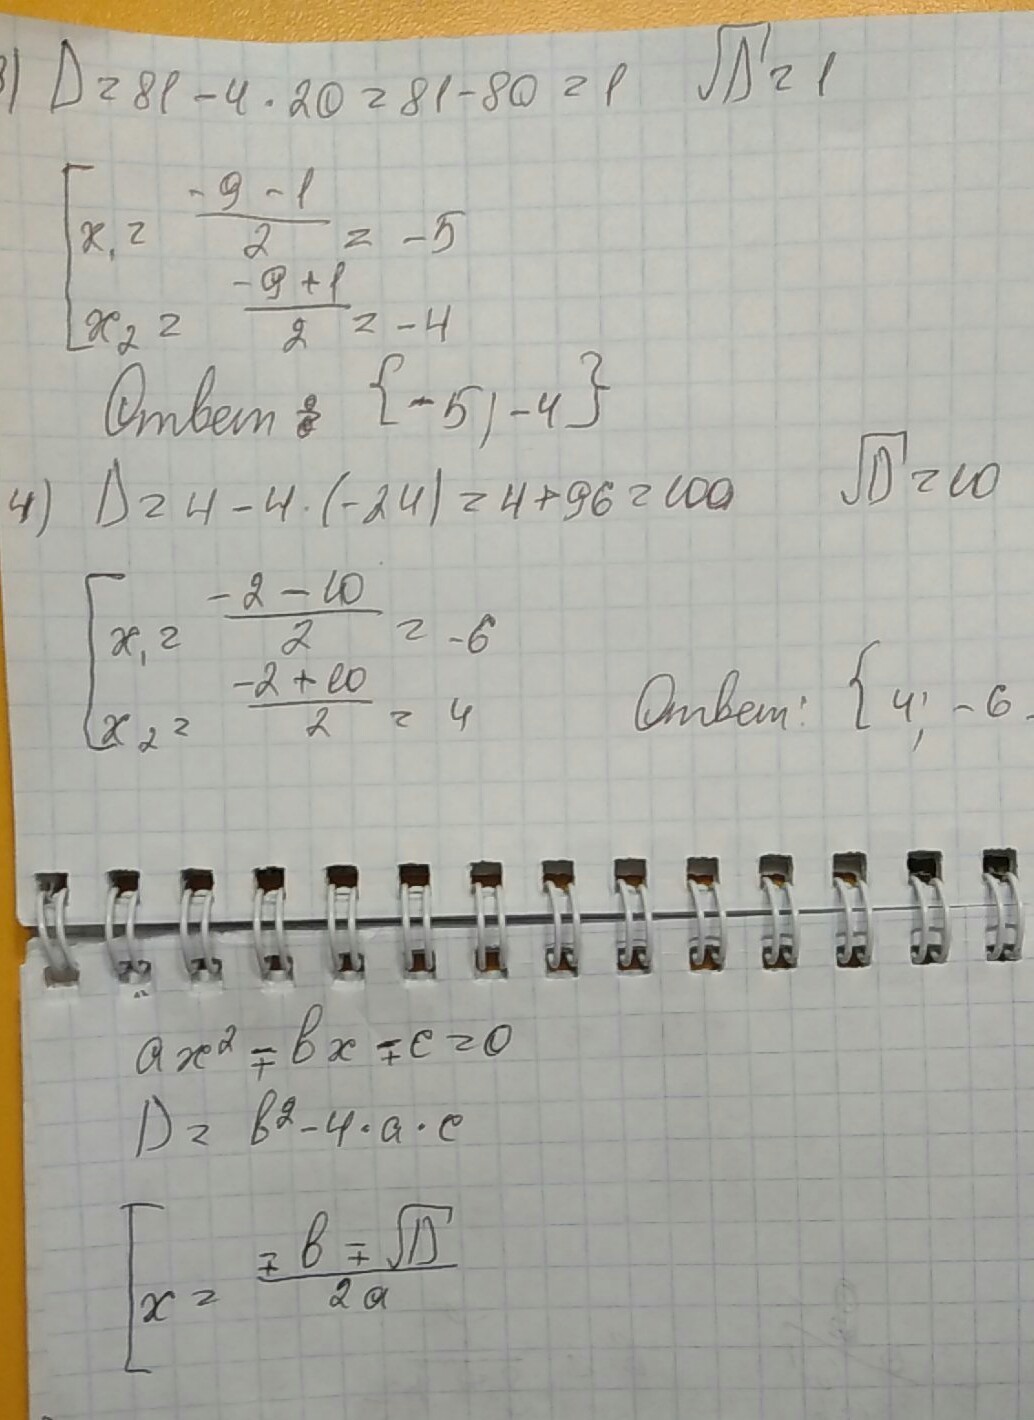 3) D = 81 - 4 · 20 = 81 - 80 = 1 √D = 1
x₁ = (-9 - 1)/2 = -5
x₂ = (-9 + 1)/2 = -4
Ответ: {-5; -4}
4) D = 4 - 4 · (-24) = 4 + 96 = 100 √D = 10
x₁ = (-2 - 10)/2 = -6
x₂ = (-2 + 10)/2 = 4 Ответ: {4; -6
ax² ∓ bx ∓ c = 0
D = b² - 4 · a · c
x = (∓ b ∓ √D)/2a